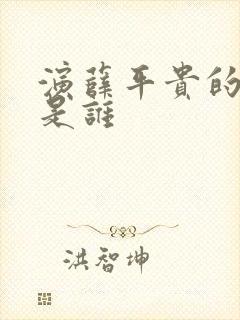 演薛平貴的
是誰
洪智坤